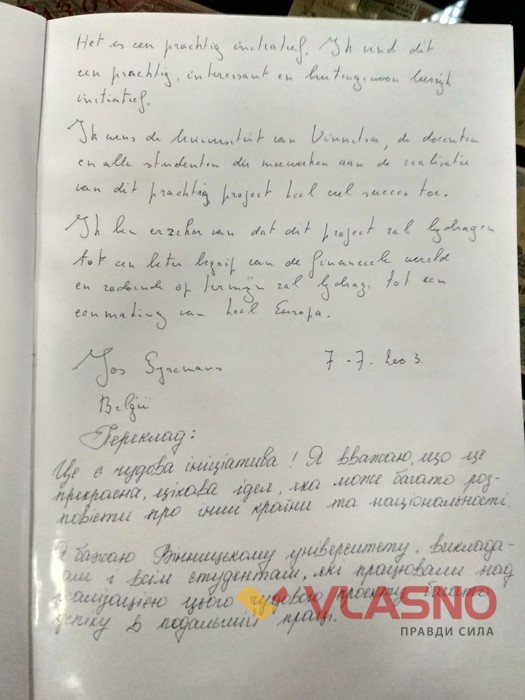 Het is een prachtig initiatief. Ik vind dit
een prachtig, interessant en buitengewoon
initiatief.
Ik wens de universiteit van Vinnitsa, de docenten
en alle studenten die meewerken aan de realisatie
van dit prachtig project heel veel succes toe.
Ik ben er zeker van dat dit project zal bijdragen
tot een beter begrip van de financiele wereld
en zodoende op termijn zal bijdrag. tot een
eenmaking van heel Europa.
Jos
7-7-2003.
België
Переклад:
Це є чудова ініціатива! Я вважаю, що це
прекрасна, цікава ідея, яка може багато роз-
повісти про інші країни та національності.
Я бажаю Вінницькому університету, виклада-
чам і всім студентам, які працювали над
реалізацією цього чудового проекту багато
успіху в подальшій праці.
VLASNO
ПРАВДИ СИЛА